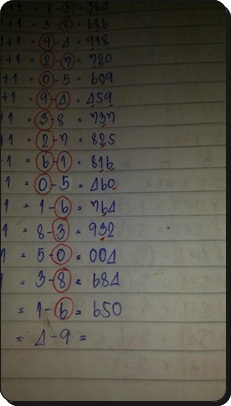 +1 = 3-8 = 686
+1 = 9-4 = 918
+1 = 2-7 = 720
+1 = 0-5 = 609
+1 = 9-4 = 459
+1 = 3-8 = 737
1 = 2-7 = 825
-1 = 6-1 = 816
1 = 0-5 = 460
1 = 1-6 = 764
1 = 8-3 = 932
1 = 5-0 = 004
1 = 3-8 = 684
= 1-6 = 650
= 4-9 =